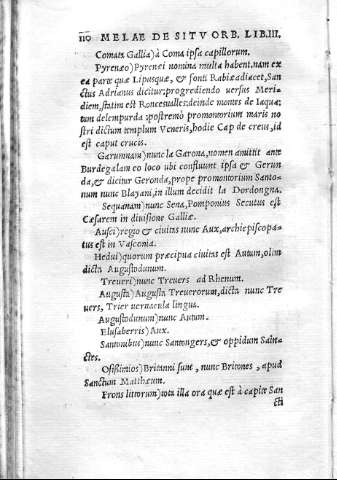 110 MELAE DE SITV ORB. LIB. III.
Comata Gallia) à Coma ipsa capillorum.
Pyrenæo) Pyrenei nomina multa habent. nam ex
ea parte quæ Lipusquæ, & fonti Rabiæ adiacet, San
ctus Adrianus dicitur: progrediendo versus Meri-
diem, statim est Roncesualles: deinde montes de Iaqua:
tum delempurda: postremò promontorium maris no
stri dictum templum Veneris, hodie Cap de creus, id
est caput crucis.
Garumnam) nunc la Garona, nomen amittit ante
Burdegalam eo loco ubi confluunt ipsa & Gerun
da, & dicitur Geronda, prope promontorium Santo-
num nunc Blayani, in illum decidit la Dordongna.
Sequanam) nunc Sena, Pomponius Secutus est
Cæsarem in diuisione Galliæ.
Ausci) regio & ciuitas nunc Aux, archiepiscopa-
tus est in Vasconia.
Hedui) quorum præcipua ciuitas est Autun, olim
dicta Augustodunum.
Treueri) nunc Treuers ad Rhenum.
Augusta) Augusta Treuerorum, dicta nunc Tre
uers, Trier vernacula lingua.
Augustodunum) nunc Autum.
Elusaberris) Aux.
Santonibus) nunc Santongers, & oppidum Sain-
ctes.
Osismios) Britanni sunt, nunc Britones, apud
Sanctum Matthæum.
Frons littorum) tota illa ora quæ est à capite San
cti